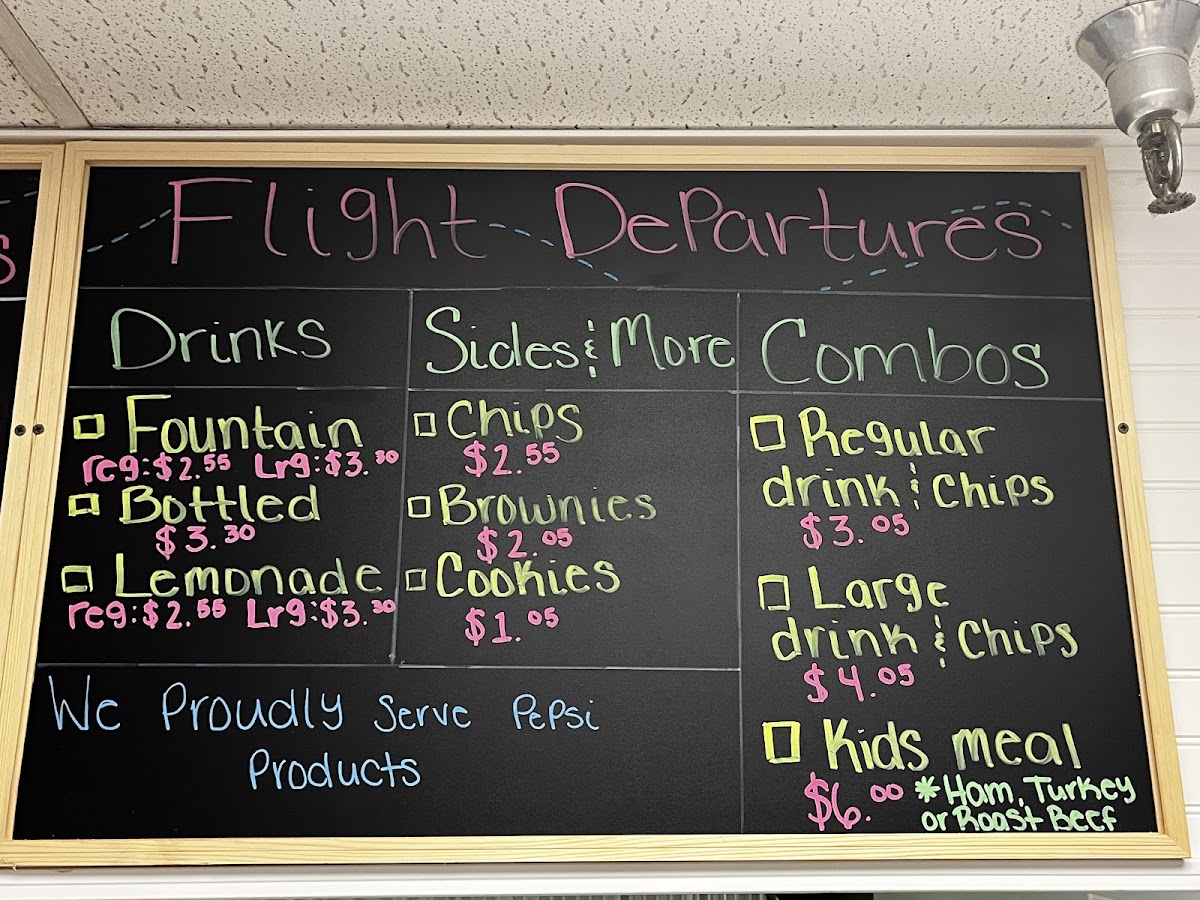 s
Flight Departures
Drinks
☐ Fountain
reg: $2.55 Lrg: $3.30
☐ Bottled
$3.30
☐ Lemonade
reg: $2.55 Lrg: $3.30
Sides & More
☐ Chips
$2.55
☐ Brownies
$2.05
☐ Cookies
$1.05
Combos
☐ Regular
drink & Chips
$3.05
☐ Large
drink & Chips
$4.05
☐ Kids meal
$6.00 *Ham, Turkey
or Roast Beef
We Proudly Serve Pepsi
Products